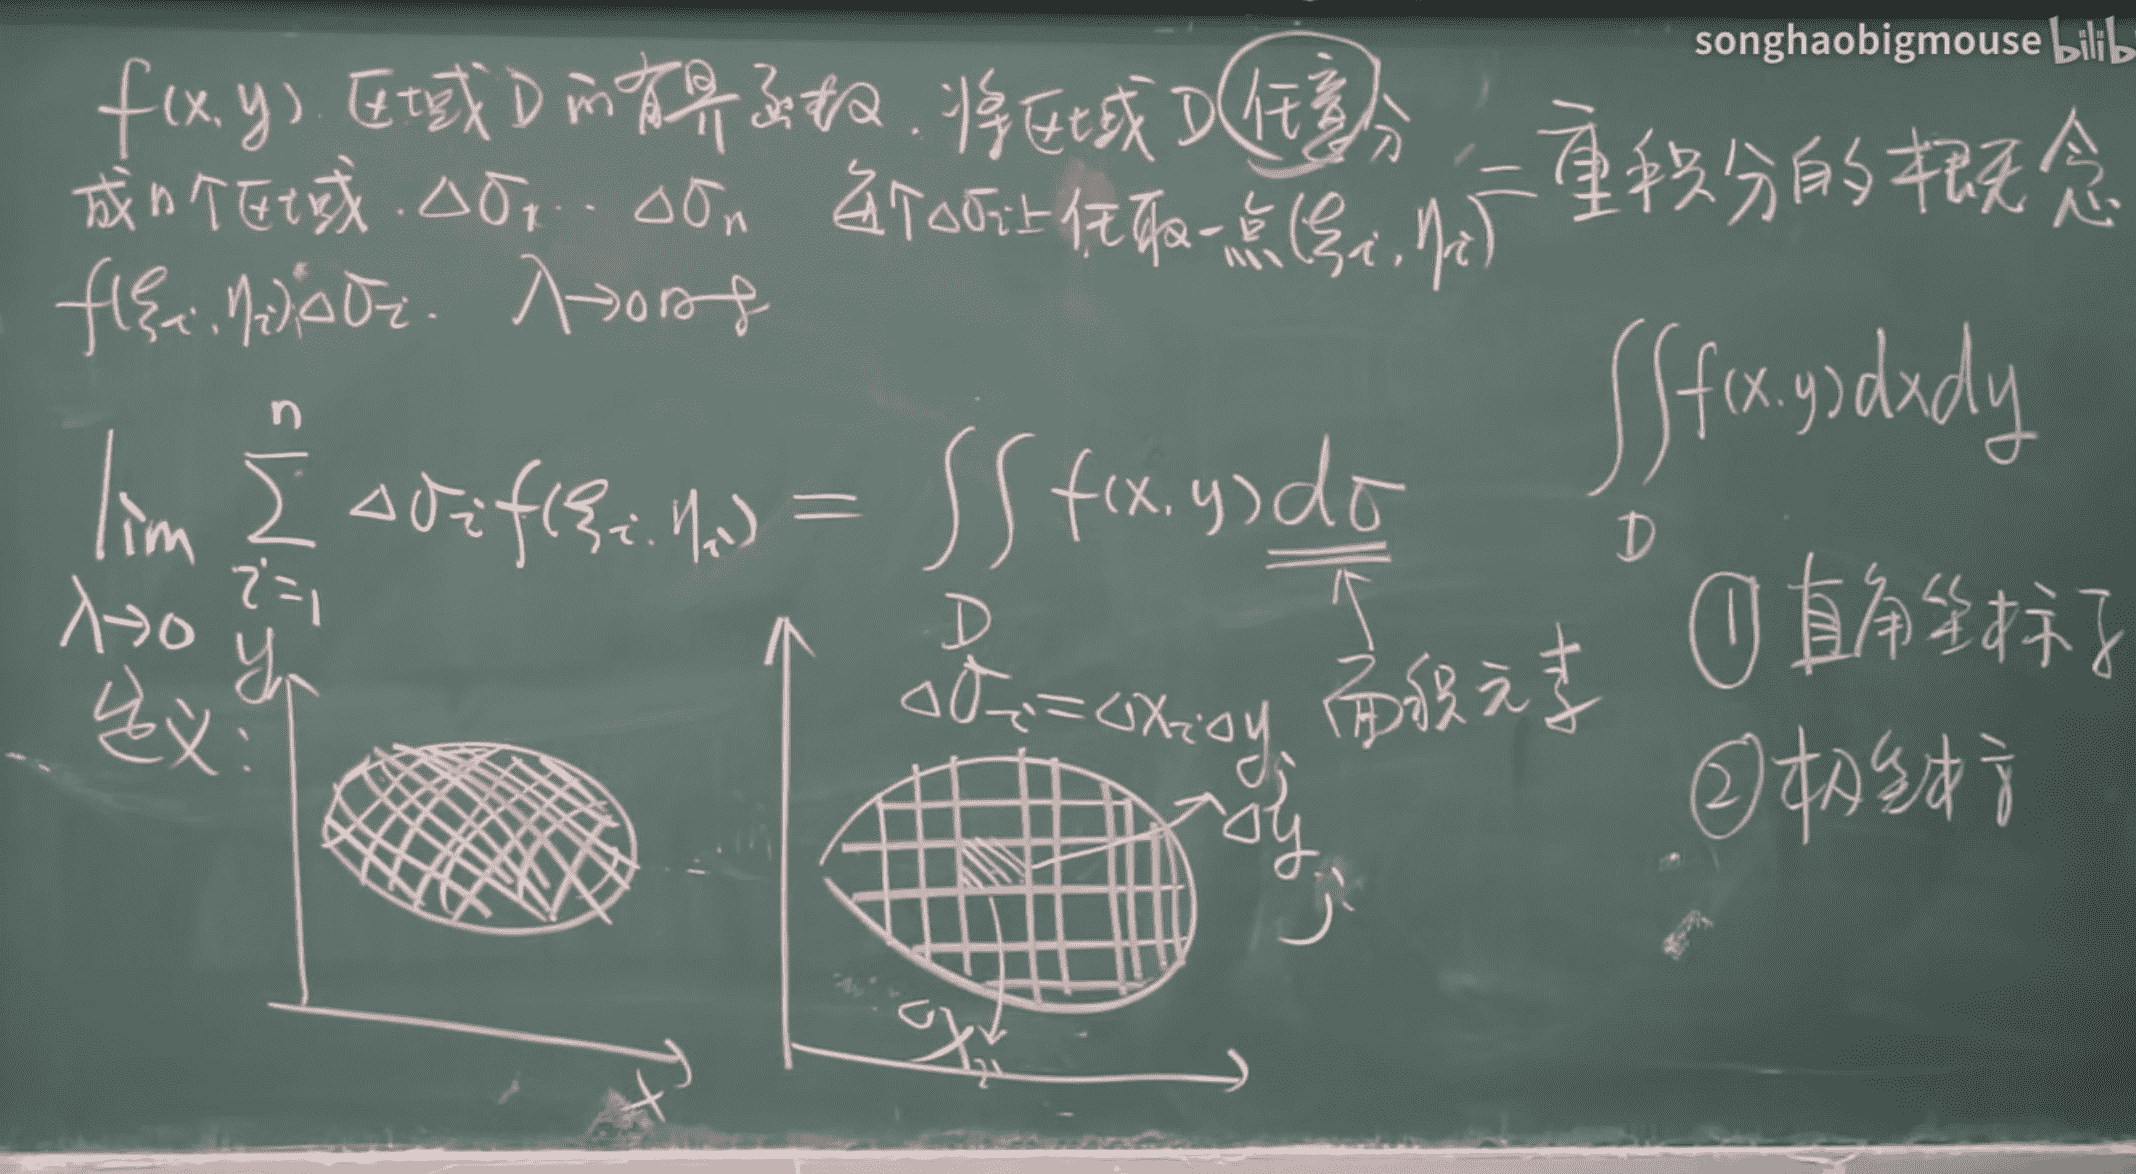 songhaobigmouse bilib
二重积分的概念
f(x,y). 区域D的有界函数. 将区域D任意分
成n个区域. Δσ₁ ⋯ Δσₙ 每个Δσᵢ上任取一点(ξᵢ, ηᵢ)
f(ξᵢ, ηᵢ)Δσᵢ. λ→0时
lim λ→0 ∑ i=1 n Δσᵢ f(ξᵢ, ηᵢ) = ∬ D f(x,y)dσ
面积元素
Δσᵢ=ΔxᵢΔyⱼ
定义:
y
x
Δyⱼ
Δxᵢ
∬ D f(x,y)dxdy
① 直角坐标
② 极坐标